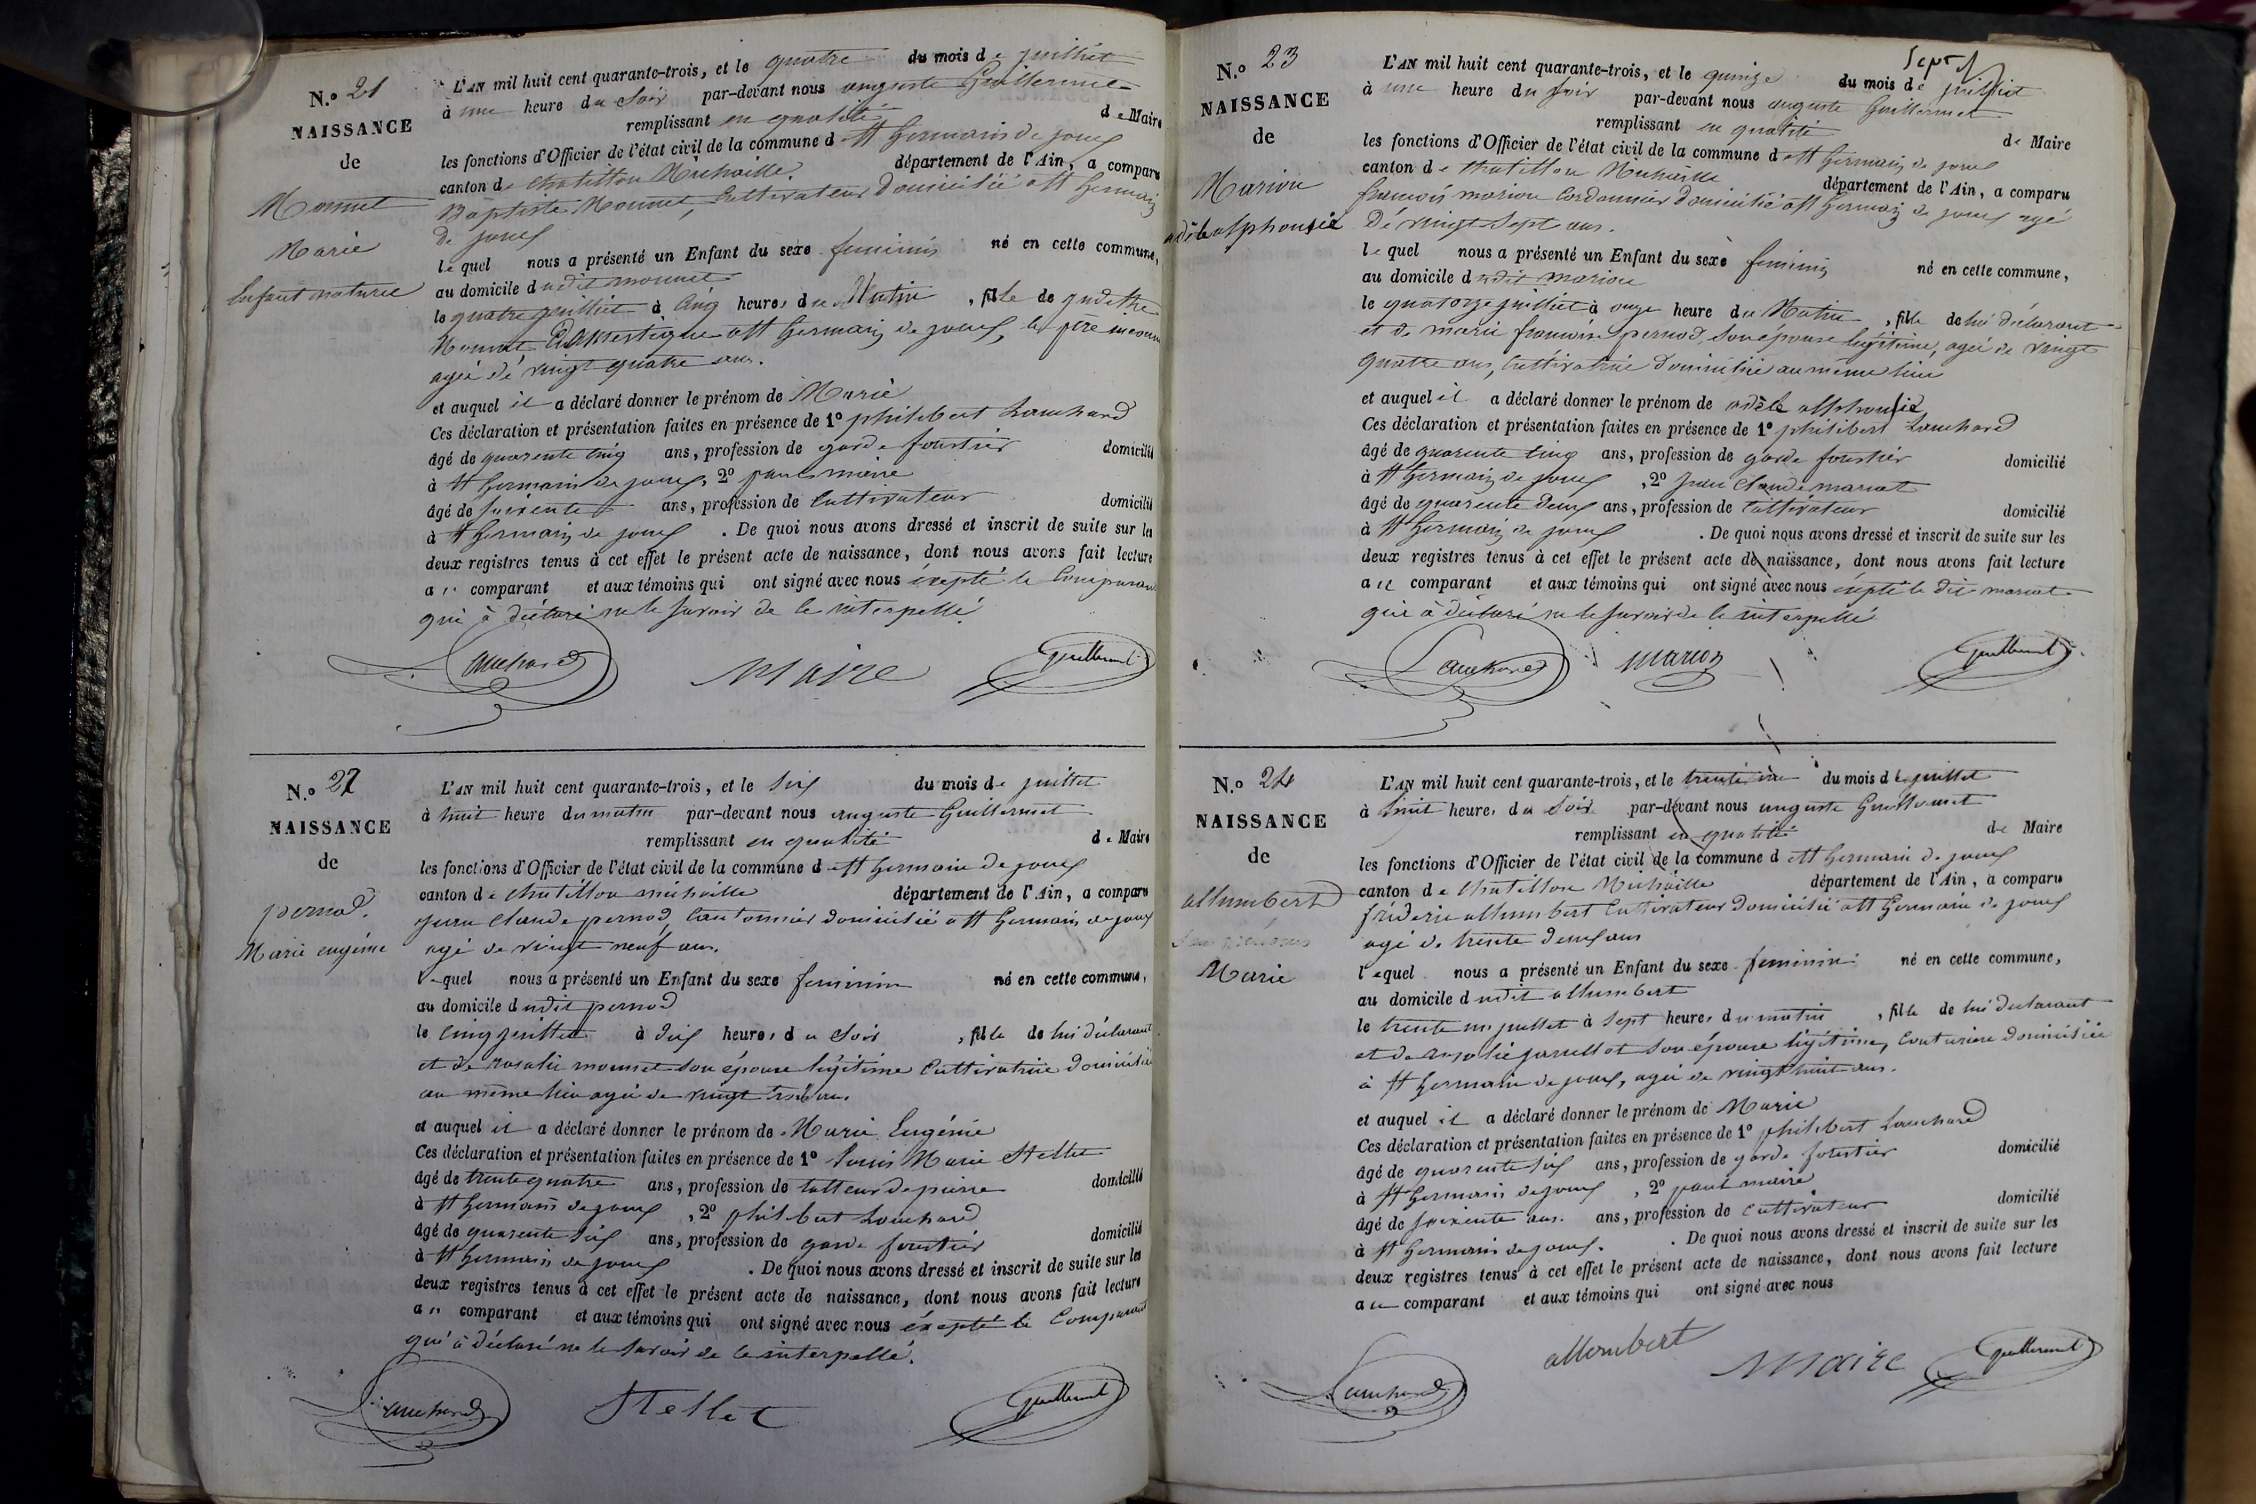 N.º 21
NAISSANCE
de
Monnet
Marie
Enfant naturel
L'AN mil huit cent quarante-trois, et le quatre du mois de juillet
à une heure du Soir par-devant nous auguste Guillermet
remplissant en qualité de Maire
les fonctions d'Officier de l'état civil de la commune de St Germain de joux
canton de Chatillon Michaille. département de l'Ain, a comparu
Baptiste Monnet, Cultivateur domicilié a St Germain
de joux
lequel nous a présenté un Enfant du sexe feminin né en cette commune,
au domicile dudit monnet
le quatre juillet à Cinq heures du Matin, fille de
Monnet Domestique a St Germain de joux, le père inconnu
agée de vingt quatre ans.
et auquel il a déclaré donner le prénom de Marie
Ces déclaration et présentation faites en présence de 1º philibert Lauchard
âgé de quarente cinq ans, profession de garde forestier domicilié
à St Germain de joux, 2º paul maire
âgé de soixente ans, profession de Cultivateur domicilié
à St Germain de joux. De quoi nous avons dressé et inscrit de suite sur les
deux registres tenus à cet effet le présent acte de naissance, dont nous avons fait lecture
au comparant et aux témoins qui ont signé avec nous exepté le Comparant
qui à déclaré ne le savoir de ce interpellé.
Lauchard Maire Guillermet
N.º 22
NAISSANCE
de
pernod.
Marie eugénie
L'AN mil huit cent quarante-trois, et le six du mois de juillet
à huit heure du matin par-devant nous auguste Guillermet
remplissant en qualité de Maire
les fonctions d'Officier de l'état civil de la commune de St Germain de joux
canton de Chatillon michaille département de l'Ain, a comparu
jean Claude pernod, Cantonnier domicilié a St Germain de joux
agé de vingt neuf ans.
lequel nous a présenté un Enfant du sexe feminin né en cette commune,
au domicile dudit pernod
le cinq juillet à dix heures du Soir, fille de lui déclarant
et de rosalie monnet son épouse légitime Cultivatrice domiciliée
au même lieu agée de vingt trois ans.
et auquel il a déclaré donner le prénom de Marie Eugénie
Ces déclaration et présentation faites en présence de 1º Louis Marie Stellet
âgé de trente quatre ans, profession de tailleur de pierre domicilié
à St Germain de joux, 2º philibert Lauchard
âgé de quarente six ans, profession de garde forestier domicilié
à St Germain de joux. De quoi nous avons dressé et inscrit de suite sur les
deux registres tenus à cet effet le présent acte de naissance, dont nous avons fait lecture
au comparant et aux témoins qui ont signé avec nous exepté le Comparant
qui à déclaré ne le savoir de ce interpellé.
Lauchard Stellet Guillermet
N.º 23
NAISSANCE
de
Marion
adèle alphonsie
L'AN mil huit cent quarante-trois, et le quinze du mois de juillet
à une heure du soir par-devant nous auguste Guillermet
remplissant en qualité de Maire
les fonctions d'Officier de l'état civil de la commune de St Germain de joux
canton de Chatillon Michaille département de l'Ain, a comparu
françois marion Cordonnier domicilié a St Germain de joux agé
de vingt sept ans.
lequel nous a présenté un Enfant du sexe feminin né en cette commune,
au domicile dudit marion
le quatorze juillet à onze heure du Matin, fille de lui déclarant
et de marie françoise pernod, son épouse légitime, agée de vingt
quatre ans, Cultivatrice domiciliée au même lieu
et auquel il a déclaré donner le prénom de adèle alphonsie
Ces déclaration et présentation faites en présence de 1º philibert Lauchard
âgé de quarente cinq ans, profession de garde forestier domicilié
à St Germain de joux, 2º jean Claude marcot
âgé de quarente deux ans, profession de Cultivateur domicilié
à St Germain de joux. De quoi nous avons dressé et inscrit de suite sur les
deux registres tenus à cet effet le présent acte de naissance, dont nous avons fait lecture
au comparant et aux témoins qui ont signé avec nous exepté le dit marcot
qui à déclaré ne le savoir de ce interpellé
Lauchard marion Guillermet
N.º 24
NAISSANCE
de
allumbert
Marie
L'AN mil huit cent quarante-trois, et le du mois de juillet
à huit heures du Soir par-devant nous auguste Guillermet
remplissant en qualité de Maire
les fonctions d'Officier de l'état civil de la commune de St Germain de joux
canton de Chatillon Michaille département de l'Ain, a comparu
fréderic allumbert Cultivateur domicilié a St Germain de joux
agé de trente deux ans
lequel nous a présenté un Enfant du sexe feminin né en cette commune,
au domicile dudit allumbert
le trente un juillet à sept heures du matin, fille de lui déclarant
et de son épouse légitime, Couturière domiciliée
à St Germain de joux, agée de vingt huit ans.
et auquel il a déclaré donner le prénom de Marie
Ces déclaration et présentation faites en présence de 1º philibert Lauchard
âgé de quarente six ans, profession de garde forestier domicilié
à St Germain de joux, 2º paul maire
âgé de soixente ans. ans, profession de Cultivateur domicilié
à St Germain de joux. De quoi nous avons dressé et inscrit de suite sur les
deux registres tenus à cet effet le présent acte de naissance, dont nous avons fait lecture
au comparant et aux témoins qui ont signé avec nous
allumbert
Lauchard Maire Guillermet